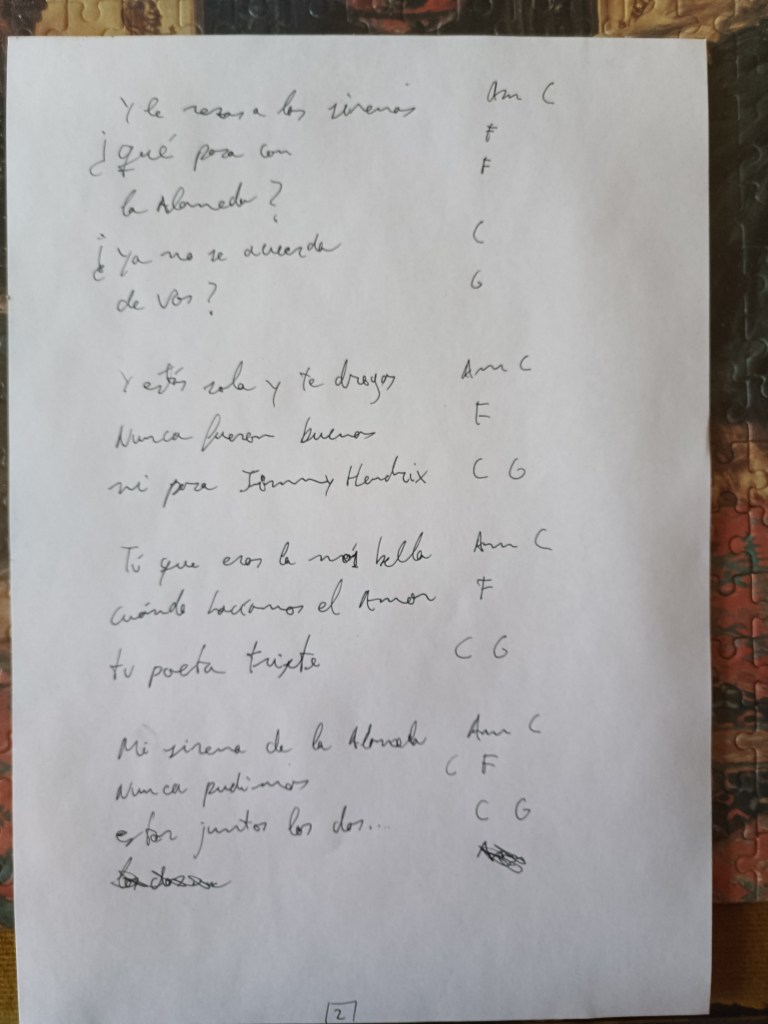 Y le rezas a las sirenas Am C
¿qué pasa con F
la Alameda? F
¿Ya no se acuerda C
de vos? G
Y estás sola y te drogas Am C
Nunca fueron buenos F
ni para Jimmy Hendrix C G
Tú que eras la más bella Am C
cuándo hacíamos el Amor F
tu poeta trixte C G
Mi sirena de la Alameda Am C
Nunca pudimos C F
estar juntos los dos... C G
2